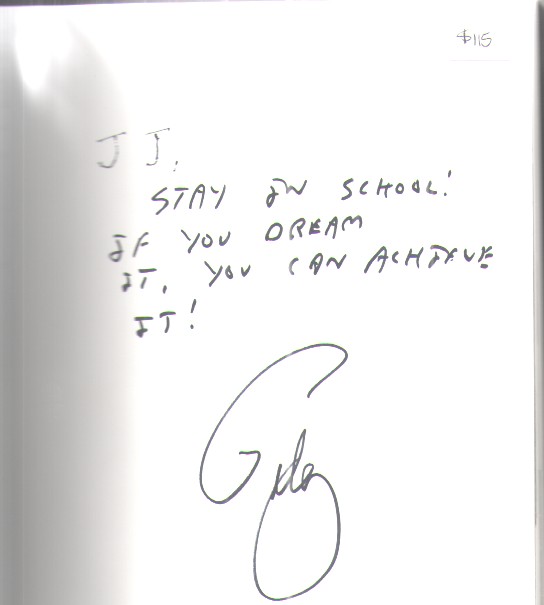 $115
J J,
STAY IN SCHOOL!
IF YOU DREAM
IT, YOU CAN ACHIEVE
IT!